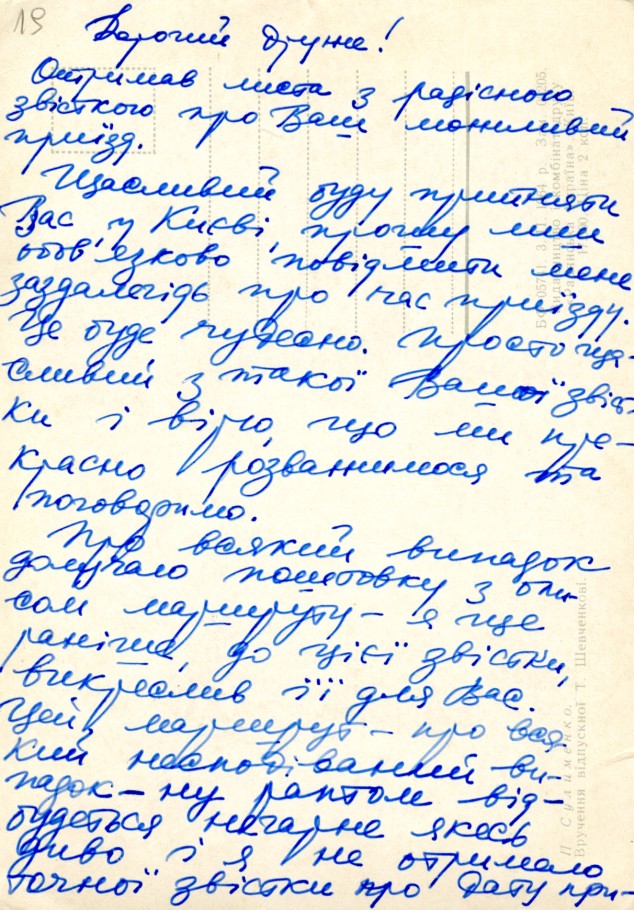 19
Дорогий друже!
Отримав листа з радісною
звісткою про Ваш можливий
приїзд.
Щасливий буду прийняти
Вас у Києві, прошу лиш
обов'язково повідмити мене
заздалегідь про час приїзду.
Це буде чудесно. Просто ща-
сливий з такої Вашої звіст-
ки і вірю, що ми пре-
красно розважимося та
поговоримо.
Про всякий випадок
долучаю поштовку з опи-
сом маршруту — я ще
раніше, до цієї звістки,
викреслив її для Вас.
Цей маршрут — про вся-
кий несподіваний ви-
падок — ну раптом від-
будеться негарне якесь
диво і я не отримаю
точної звістки про дату при-
П Сулименко.
Вручення відпускної Т. Шевченкові.